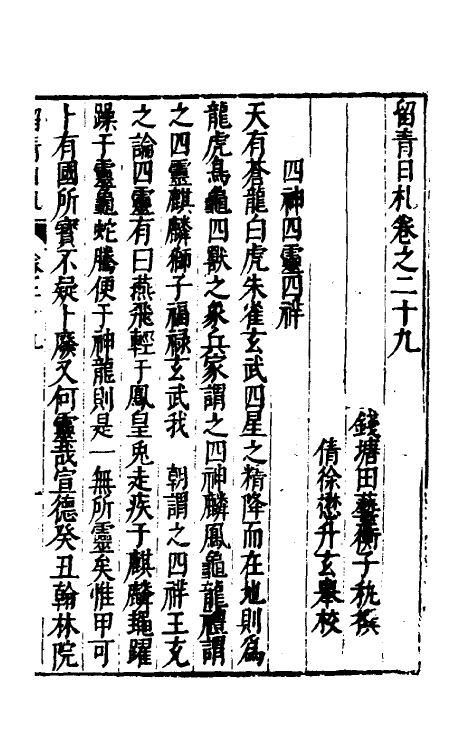 留青日札卷之二十九
錢塘田藝衡子秇撰
倩徐懋升玄舉校
四神四靈四祥
天有蒼龍白虎朱雀玄武四星之精降而在地則爲
龍虎鳥龜四獸之象兵家謂之四神麟鳳龜龍禮謂
之四靈麒麟獅子福祿玄武我　朝謂之四祥王充
之論四靈有曰燕飛輕于鳳皇兎走疾于麒麟䵷躍
躁于靈龜蛇騰便于神龍則是一無所靈矣惟甲可
卜有國所寳不疑卜廢又何靈哉宣德癸丑翰林院
留青日札 卷二十九 一